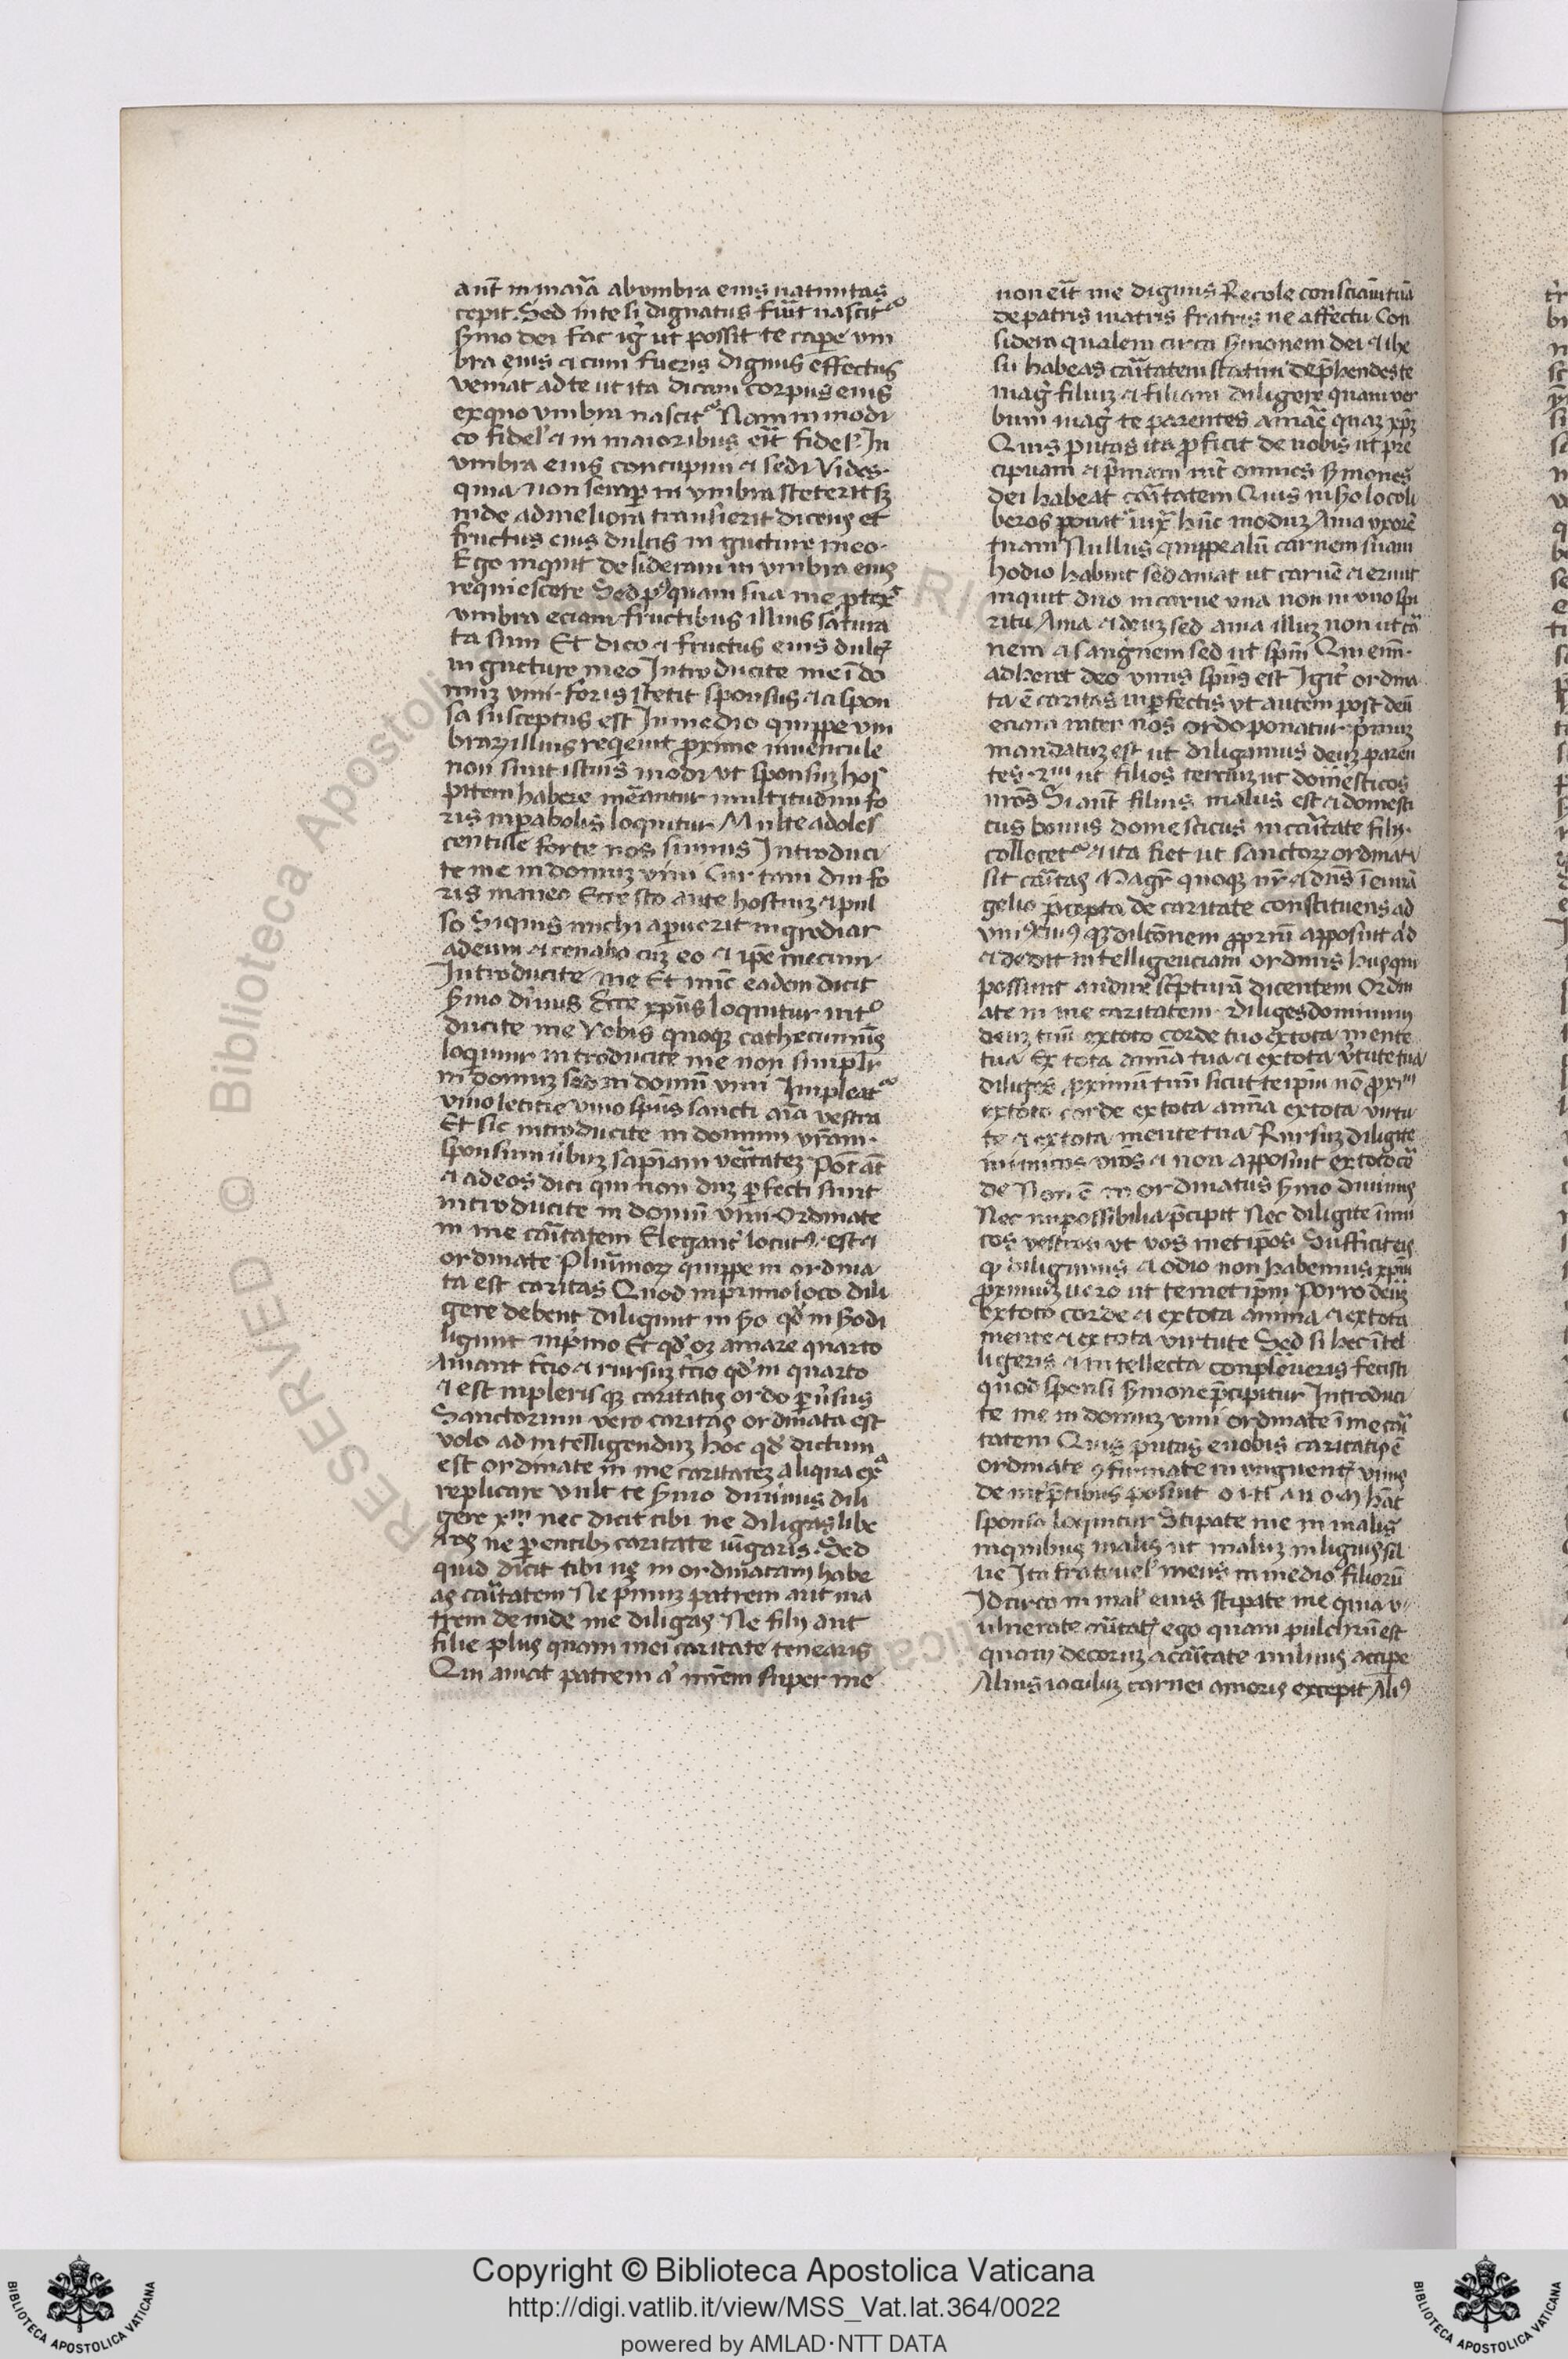 aut̄ in maīa ab vmbra eius natiuitas
cepit. Sed in te si dignatus fūit nascit᷑
ẜmo dei fac igͥ ut possit te cape vm
bra eius ⁊ cum fueris dignus effectus
veniat ad te ut ita dicam corpus eius
ex quo vmbra nascit᷑ Nam in modi
co fidel̛ ⁊ in maioribus eīt fidel̛ In
vmbra eius concupiui ⁊ sedi Vides
quia non semꝑ in vmbra steterit sꝫ
inde ad meliorā transierit dicens et
fructus eius dulcis in gutture meo
Ego inquit desideram in vmbra eius
requiescere Sed pꝰquam sua me ꝓtexͭ
vmbra eciam fructibus illius satura
ta sum Et dico ⁊ fructus eius dulcꝭ
in gutture meo Introducite me ī do
muꝫ vini. foris stetit sponsus ⁊ a spon
sa susceptus est In medio quippe vm
braꝝ illius reqeuit ꝓxime iuuencule
non sunt istius modi vt sponsuꝫ hos
pitem habere meāntur multitudini fo
ris in ꝑabolis loquitur Multe adoles
centule forte nos sumus Introduci
te me in domuꝫ vini Cur tam diu fo
ris maneo Ecce sto ante hostiuꝫ ⁊ pul
so Si quis michi aꝑuerit ingrediar
ad eum ⁊ cenabo cuꝫ eo ⁊ ip̄e mecum
Introducite me Et nūc eadem dicit
ẜmo dīnus Ecce xp̄us loquitur intͦ
ducite me Vobis quoqꝫ cathecumīs
loquitur introducite me non simplr̄
in domuꝫ sed in domū vini Impleat᷑
vino leticie vino sp̄us sancti aīa vestra
Et sic introducite in domum vr̄am
sponsum ūbuꝫ sapīam veritateꝫ Pōt aūt
⁊ ad eos dici qui non duꝫ ꝑfecti sunt
introducite in domū vini Ordinate
in me caītatem Eleganͭ locutꝰ est ⁊
ordinate Pluīmoꝝ quippe in ordina
ta est caritas Quod in primo loco dili
gere debent diligunt in ẜo qd̛ in ẜo di
ligunt in pͥmo Et qd̛ oꝫ amare quarto
amant tͨcio ⁊ rursuꝫ tͨcio qd̛ in quarto
⁊ est in plerisqꝫ caritatis ordo ꝑūsus
Sanctorum vero caritas ordinata est
volo ad intelligenduꝫ hoc qd̛ dictum
est ordinate in me caritateꝫ aliqua exͣ
replicare Vult te ẜmo diuinus dili
gere xᵐ nec dicit tibi ne diligas libe
ros ne ꝑentibꝫ caritate iūgaris. Sed
quid dicit tibi ne in ordinatam habe
as caītatem Ne pͥmuꝫ patrem aut ma
trem deinde me diligas Ne filij aut
filie plus quam mei caritate tenearis
Qui amat patrem aͭ mr̄em super me
non eīt me dignus Recole consciam̄ tuā
de patris matris fratris ne affectu Con
sidera qualem circa ẜmonem dei ⁊ ihe
su habeas caītatem statim dep̄hendes te
magͥ filiuꝫ ⁊ filiam diligere quam ver
bum magͥ te parentes amae quaꝫ xp̄ꝫ
Quis putas ita ꝓficit de uobis ut pre
cipuam ⁊ pͥmam int̄ omnes ẜmones
dei habeat caītatem Quis in ẜo loco li
beros ponat Iuxͣ hūc moduꝫ Ama vxorē
tuam Nullus quippe alīi carnem suam
hodio habuit sed amat ut carnē ⁊ erunt
inquit duo in carne una non in uno spi
ritu Ama ⁊ deuꝫ sed ama illuꝫ non ut cͣ
nem ⁊ sangͥnem sed ut spm̄ Qui enim
adheret deo unus sp̄us est Igitͬ ordina
ta ē caritas in ꝑfectis vt autem post deū
eciam inter nos ordo ponatur pͥmuꝫ
mandatuꝫ est ut diligamus deuꝫ paren
tes. 2ᵐ ut filios terciuꝫ ut domesticos
nr̄os Si aut̄ filius malus est ⁊ domesti
cus bonus domesticus in caītate filij
collocet᷑ ⁊ ita fiet ut sanctoꝝ ordinata
sit caītas Magr̄ quoqꝫ nr̄ ⁊ dn̄s ī euuā
gelio p̄cepta de caritate constituens ad
vniꝰcuiꝰqꝫ dilcōnem ꝓpriū apposuit ad
⁊ dedit intelligenciam ordinis hijs qui
possunt audire scͥpturā dicentem Ordin
ate in me caritatem. Diliges dominum
deuꝫ tuū ex toto corde tuo ex tota mente
tua Ex tota anīa tua ⁊ ex tota v̄tute tua
diliges ꝓximū tuū sicut te ip̄m nō ꝓxiᵐ
ex toto corde ex tota anīa ex tota virtu
te ⁊ ex tota mente tua Rursuꝫ diligite
inimicos vr̄os ⁊ non apposuit ex toto cͦ
de Non ē in ordinatus ẜmo diuinus
Nec impossibilia p̄cipit Nec diligite īimi
cos vestros vt vos met ip̄os Sufficit eis
ꝙ diligimus ⁊ odio non habemus xp̄m
ꝓximuꝫ uero ut temet ip̄m Porro deuꝫ
ex toto corde ⁊ ex tota anima ⁊ ex tota
mente ⁊ ex tota virtute Sed si hec ītel
ligeris ⁊ intellecta conpleueris fecisti
quod sponsi ẜmone p̄cipitur Introduci
te me in domuꝫ vini ordinate ī me cāi
tatem Quis putas e uobis caritatis ē
ordinate 9firmate in vnguentꝭ vnus
de int̄p̄tibus posuit
sponsa loquitur Stipate me in malis
in quibus malis ut maluꝫ in lignis sil
ue Ita fratruel̛ meus in medio filiorū
Idcirco in mal̛ eius stipate me quia v
ulnerate cāitatꝭ ego quam pulchrū est
quam decoruꝫ a caītate vulnus accipe
Alius iaculuꝫ carnei amoris excepit Aliꝰ
Copyright © Biblioteca Apostolica Vaticana
http://digi.vatlib.it/view/MSS_Vat.lat.364/0022
powered by AMLAD·NTT DATA